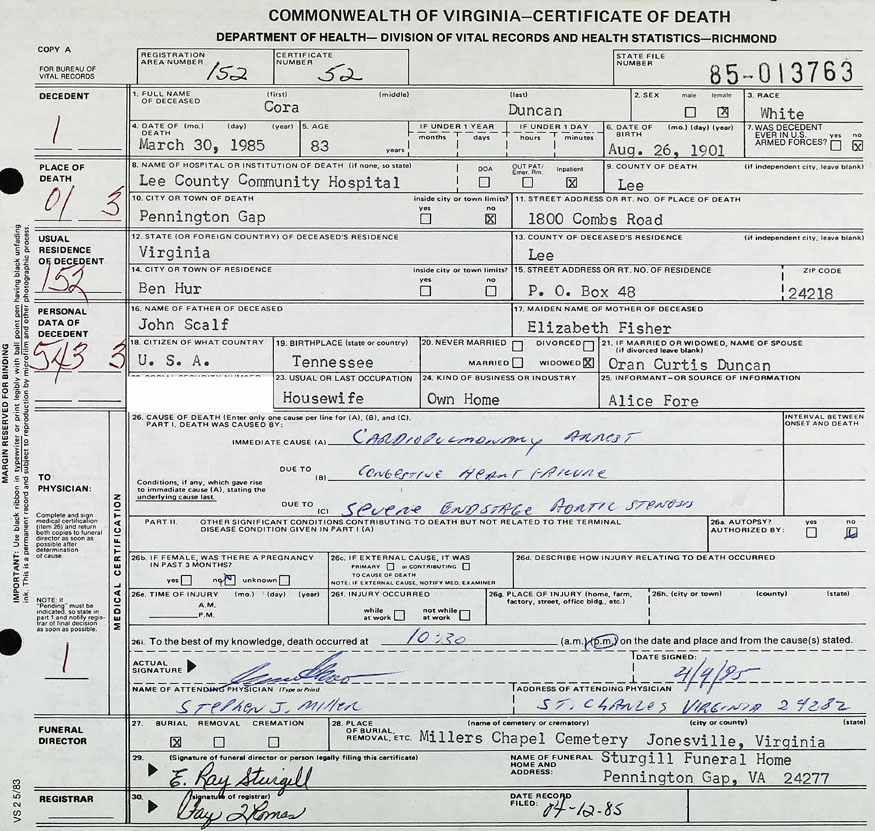 COMMONWEALTH OF VIRGINIA—CERTIFICATE OF DEATH
DEPARTMENT OF HEALTH— DIVISION OF VITAL RECORDS AND HEALTH STATISTICS—RICHMOND
COPY A
FOR BUREAU OF VITAL RECORDS
REGISTRATION AREA NUMBER 152
CERTIFICATE NUMBER 52
STATE FILE NUMBER 85-013763
DECEDENT
1
1. FULL NAME OF DECEASED (first) (middle) (last)
Cora Duncan
2. SEX male female ☒
3. RACE
White
4. DATE OF DEATH (mo.) (day) (year)
March 30, 1985
5. AGE
83 years
IF UNDER 1 YEAR months days
IF UNDER 1 DAY hours minutes
6. DATE OF BIRTH (mo.) (day) (year)
Aug. 26, 1901
7. WAS DECEDENT EVER IN U.S. ARMED FORCES? yes no ☒
PLACE OF DEATH
01 3
8. NAME OF HOSPITAL OR INSTITUTION OF DEATH (if none, so state)
Lee County Community Hospital
DOA OUT PAT/ Emer. Rm. Inpatient ☒
9. COUNTY OF DEATH (if independent city, leave blank)
Lee
10. CITY OR TOWN OF DEATH inside city or town limits? yes no ☒
Pennington Gap
11. STREET ADDRESS OR RT. NO. OF PLACE OF DEATH
1800 Combs Road
USUAL RESIDENCE OF DECEDENT
152
12. STATE (OR FOREIGN COUNTRY) OF DECEASED'S RESIDENCE
Virginia
13. COUNTY OF DECEASED'S RESIDENCE (if independent city, leave blank)
Lee
14. CITY OR TOWN OF RESIDENCE inside city or town limits? yes no
Ben Hur
15. STREET ADDRESS OR RT. NO. OF RESIDENCE ZIP CODE
P. O. Box 48 24218
PERSONAL DATA OF DECEDENT
543 3
16. NAME OF FATHER OF DECEASED
John Scalf
17. MAIDEN NAME OF MOTHER OF DECEASED
Elizabeth Fisher
18. CITIZEN OF WHAT COUNTRY
U. S. A.
19. BIRTHPLACE (state or country)
Tennessee
20. NEVER MARRIED DIVORCED
MARRIED WIDOWED ☒
21. IF MARRIED OR WIDOWED, NAME OF SPOUSE (if divorced leave blank)
Oran Curtis Duncan
23. USUAL OR LAST OCCUPATION
Housewife
24. KIND OF BUSINESS OR INDUSTRY
Own Home
25. INFORMANT—OR SOURCE OF INFORMATION
Alice Fore
MARGIN RESERVED FOR BINDING
IMPORTANT: Use black ribbon in typewriter or print legibly with ball point pen having black unfading ink. This is a permanent record and subject to reproduction by microfilm and other photographic process.
TO PHYSICIAN:
Complete and sign medical certification (item 26) and return both copies to funeral director as soon as possible after determination of cause.
NOTE: If "Pending" must be indicated, so state in part 1 and notify registrar of final decision as soon as possible.
1
MEDICAL CERTIFICATION
26. CAUSE OF DEATH (Enter only one cause per line for (A), (B), and (C).
PART I. DEATH WAS CAUSED BY:
INTERVAL BETWEEN ONSET AND DEATH
IMMEDIATE CAUSE (A) CARDIOPULMONARY ARREST
DUE TO (B) CONGESTIVE HEART FAILURE
Conditions, if any, which gave rise to immediate cause (A), stating the underlying cause last.
DUE TO (C) SEVERE ENDSTAGE AORTIC STENOSIS
PART II. OTHER SIGNIFICANT CONDITIONS CONTRIBUTING TO DEATH BUT NOT RELATED TO THE TERMINAL DISEASE CONDITION GIVEN IN PART I (A)
26a. AUTOPSY? AUTHORIZED BY: yes no
26b. IF FEMALE, WAS THERE A PREGNANCY IN PAST 3 MONTHS?
yes no unknown
26c. IF EXTERNAL CAUSE, IT WAS
PRIMARY or CONTRIBUTING
TO CAUSE OF DEATH
NOTE: IF EXTERNAL CAUSE, NOTIFY MED. EXAMINER
26d. DESCRIBE HOW INJURY RELATING TO DEATH OCCURRED
26e. TIME OF INJURY (mo.) (day) (year)
A.M.
P.M.
26f. INJURY OCCURRED
while at work not while at work
26g. PLACE OF INJURY (home, farm, factory, street, office bldg., etc.)
26h. (city or town) (county) (state)
26i. To the best of my knowledge, death occurred at 10:30 (a.m.) (p.m.) on the date and place and from the cause(s) stated.
ACTUAL SIGNATURE
DATE SIGNED: 4/4/85
NAME OF ATTENDING PHYSICIAN (Type or Print)
STEPHEN J. MILLER
ADDRESS OF ATTENDING PHYSICIAN
ST. CHARLES VIRGINIA 24282
FUNERAL DIRECTOR
27. BURIAL REMOVAL CREMATION
☒
28. PLACE OF BURIAL, REMOVAL, ETC. (name of cemetery or crematory) (city or county) (state)
Millers Chapel Cemetery Jonesville, Virginia
29. (Signature of funeral director or person legally filing this certificate)
E. Ray Sturgill
NAME OF FUNERAL HOME AND ADDRESS:
Sturgill Funeral Home
Pennington Gap, VA 24277
REGISTRAR
30. (signature of registrar)
Fay Thomas
DATE RECORD FILED: 04-12-85
VS 2 5/83